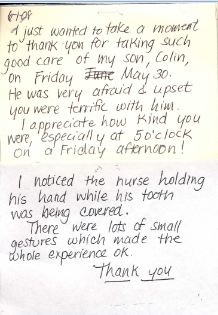 6-1-08
I just wanted to take a moment
to thank you for taking such
good care of my son, Colin,
on Friday June May 30.
He was very afraid & upset
you were terrific with him.
I appreciate how kind you
were, especially at 5 o'clock
on a Friday afternoon!
I noticed the nurse holding
his hand while his tooth
was being covered.
There were lots of small
gestures which made the
whole experience ok.
Thank you